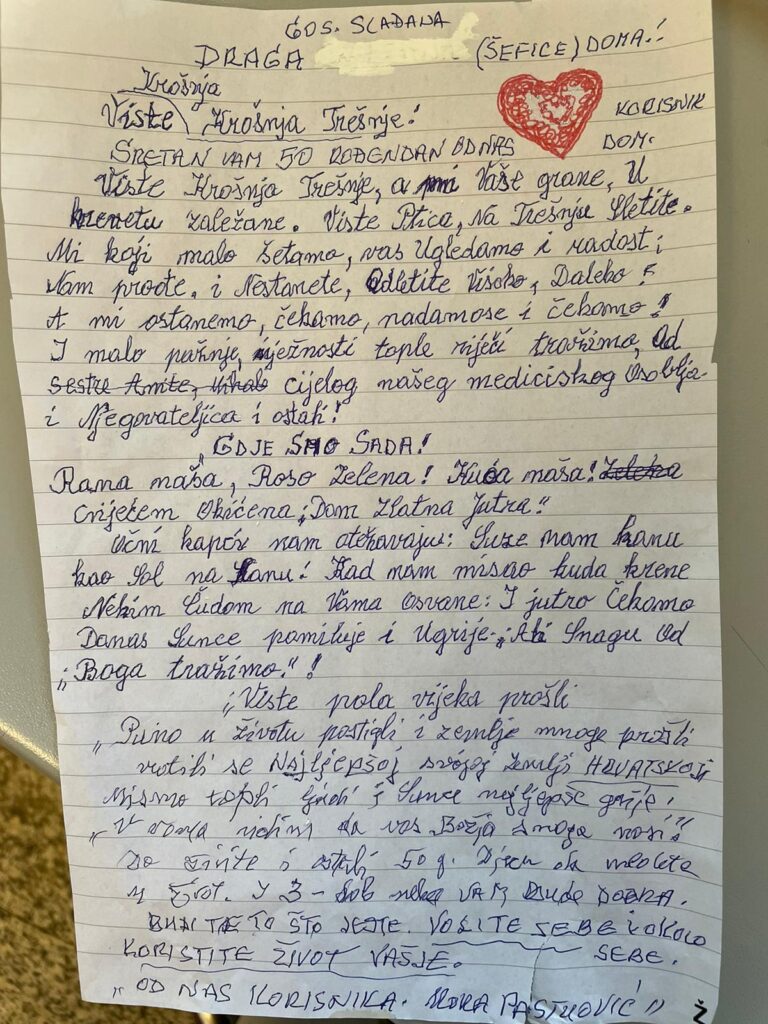 GOS. SLAĐANA
DRAGA (ŠEFICE) DOMA.!
Krošnja
Viste Krošnja Trešnje! KORISNIK
SRETAN VAM 50 ROĐENDAN OD NAS DOM.
Viste Krošnja Trešnje, a mi Vaše grane, U
krenetu zaležane. Viste Ptica, Na Trešnju Sletite.
Mi koji malo šetamo, vas Ugledamo i radost i
Nam prođe. i Nestanete, Odletite Visoko, Daleko!
A mi ostanemo, čekamo, nadamose i čekamo!
I malo pažnje, nježnosti tople riječi tražimo, Od
sestre cijelog našeg mediciskog Osoblja.
i Njegovateljica i ostali!
„GDJE SMO SADA!
Rama naša, Roso Zelena! Kuća naša! Zelena
Cvijećem Okićena „Dom Zlatna Jutra!"
Očni kapci nam otežavaju: Suze nam kanu
kao Sol na Ranu! Kad nam misao kuda krene
Nekim Čudom na Vama Osvane: I jutro Čekamo
Danas Sunce pomiluje i Ugrije. „Ali Snagu Od
„Boga tražimo."!
„Viste pola vijeka prošli
„Puno u životu postigli i zemlje mnoge prošli
vratili se Najljepšoj svojoj Zemlji HRVATSKOJ
Mismo topli ljudi i Sunce najljepše grije!
„V vama vidim da vas Božja snaga nosi!"
Do živite i ostalih 50 g.
u život. I 3-dob neka VAM Bude DOBRA.
BUDITE TO ŠTO JESTE. VOLITE SEBE i OKOLO
KORISTITE ŽIVOT VAŠJE. SEBE.
„OD NAS KORISNIKA. PASTROVIĆ" Ž